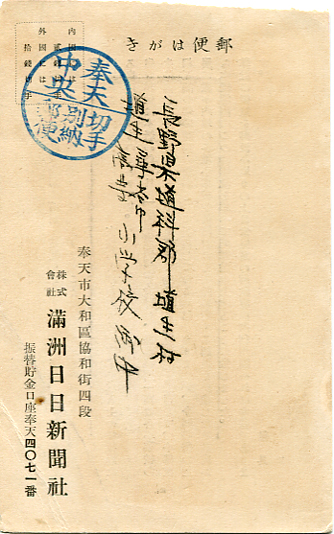 郵便はがき
長野県埴科郡埴生村
埴生尋常
高等
小学校御中
内國
外國には
拾錢切手
奉天
中央
切手
別納
郵便
奉天市大和區協和街四段
株式
會社
滿洲日日新聞社
振替貯金口座奉天四〇七一番